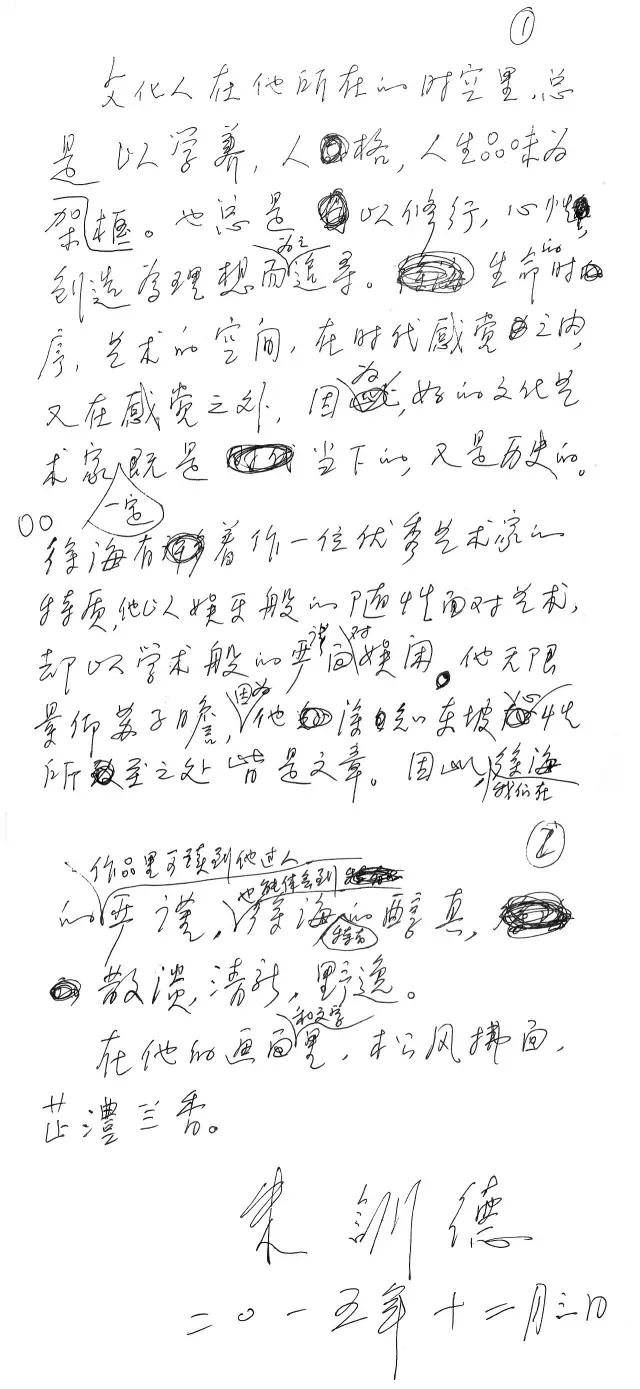 ①
文化人在他所在的时空里,总
是以学养,人格,人生品味为
架框。也总是以修行,心性,
创造为理想而为之追寻。生命的时
序,艺术的空间,在时代感觉之内,
又在感觉之外,因为,好的文化艺
术家一定既是当下的,又是历史的。
徐海有着作一位优秀艺术家的
特质,他以娱乐般的随性面对艺术,
却以学术般的严谨面对娱闲。他无限
景仰苏子瞻,因为他深知东坡心性
所至之处皆是文章。因此,我们在徐海
②
作品里可读到他过人
的严谨,也能体会到徐海特有的醇真,
散淡,清新,野逸。
在他的画面和文学里,松风拂面,
芷澧兰香。
朱訓德
二〇一五年十二月三日